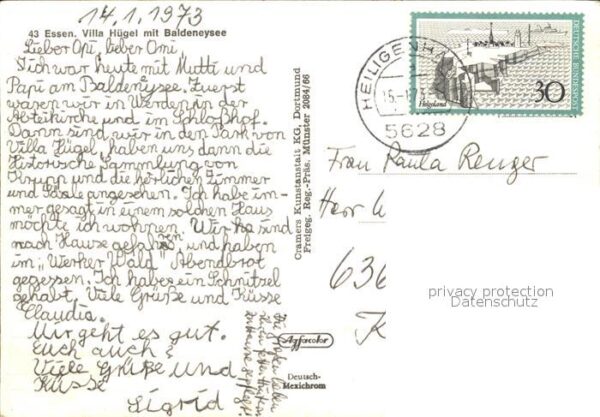 14.1.1973
43 Essen. Villa Hügel mit Baldeneysee
Lieber Opi, lieber Omi,
Ich war heute mit Mutti und
Papi am Baldeneysee. Zuerst
waren wir in Werden in der
Abteikirche und im Schloßhof.
Dann sind wir in den Park von
Villa Hügel, haben uns dann die
Historische Sammlung von
Krupp und die herlichen Zimmer
und Säale angesehen. Ich habe im-
mer gesagt in einem solchen Haus
möchte ich wohnen. Wir sind
nach Hause gefahren und haben
im „Werher Wald" Abendbrot
gegessen. Ich habe ein Schnitzel
gehabt. Viele Grüße und Küsse
Claudia.
Mir geht es gut.
Euch auch?
Viele Grüße und
Küsse
Sigrid
Cramers Kunstanstalt KG, Dortmund
Freigeg. Reg.-Präs. Münster 2084/66
Agfacolor
Deutsch-
Mexichrom
HEILIGENH
15.-1.73
5628
Helgoland
30
DEUTSCHE BUNDESPOST
Frau Paula Renger
Herr
636
K
privacy protection
Datenschutz